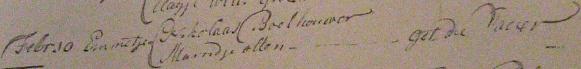 Febr: 10 Emmetje Nikolaas Boelhouwer
Marretje Otten get. de Vader